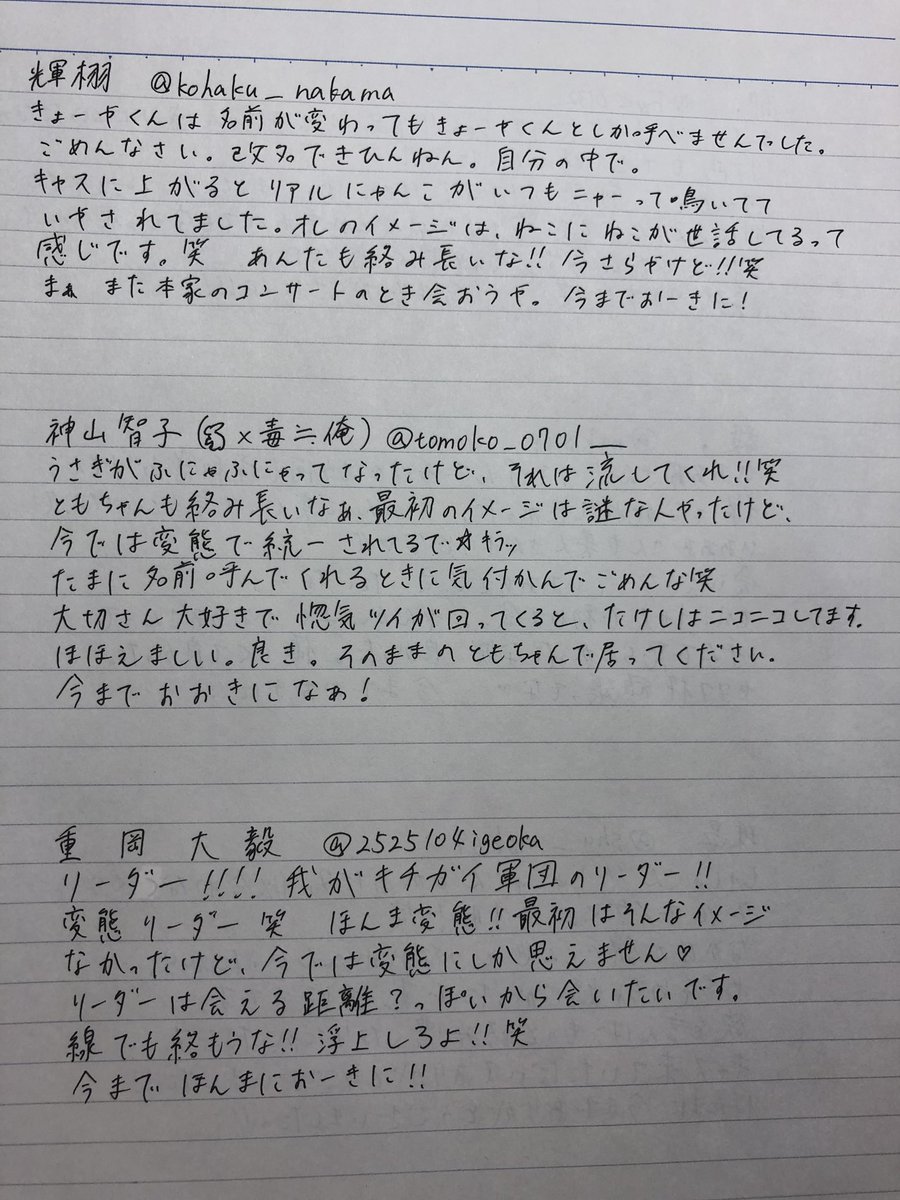 輝栩 @kohaku_nakama
きょーやくんは名前が変わってもきょーやくんとしか呼べませんでした。
ごめんなさい。改名できひんねん。自分の中で。
キャスに上がるとリアルにゃんこがいつもニャーって鳴いてて
いやされてました。オレのイメージは、ねこにねこが世話してるって
感じです。笑 あんたも絡み長いな!! 今さらやけど!!笑
まぁ また本家のコンサートのとき会おうや。今までおーきに!
神山智子( ×毒≒俺) @tomoko_0701__
うさぎがふにゃふにゃってなったけど、それは流してくれ!!笑
ともちゃんも絡み長いなぁ、最初のイメージは謎なんやったけど、
今では変態で統一されてるで☆キラッ
たまに名前呼んでくれるときに気付かんでごめんな笑
大切さん大好きで惚気ツイが回ってくると、たけしはニコニコしてます。
ほほえましい。良き。そのままのともちゃんで居ってください。
今までおおきになぁ!
重岡大毅 @2525104igeoka
リーダー!!!! 我がキチガイ軍団のリーダー!!
変態リーダー笑 ほんま変態!! 最初はそんなイメージ
なかったけど、今では変態にしか思えません♡
リーダーは会える距離?っぽいから会いたいです。
線でも絡もうな!! 浮上しろよ!! 笑
今までほんまにおーきに!!